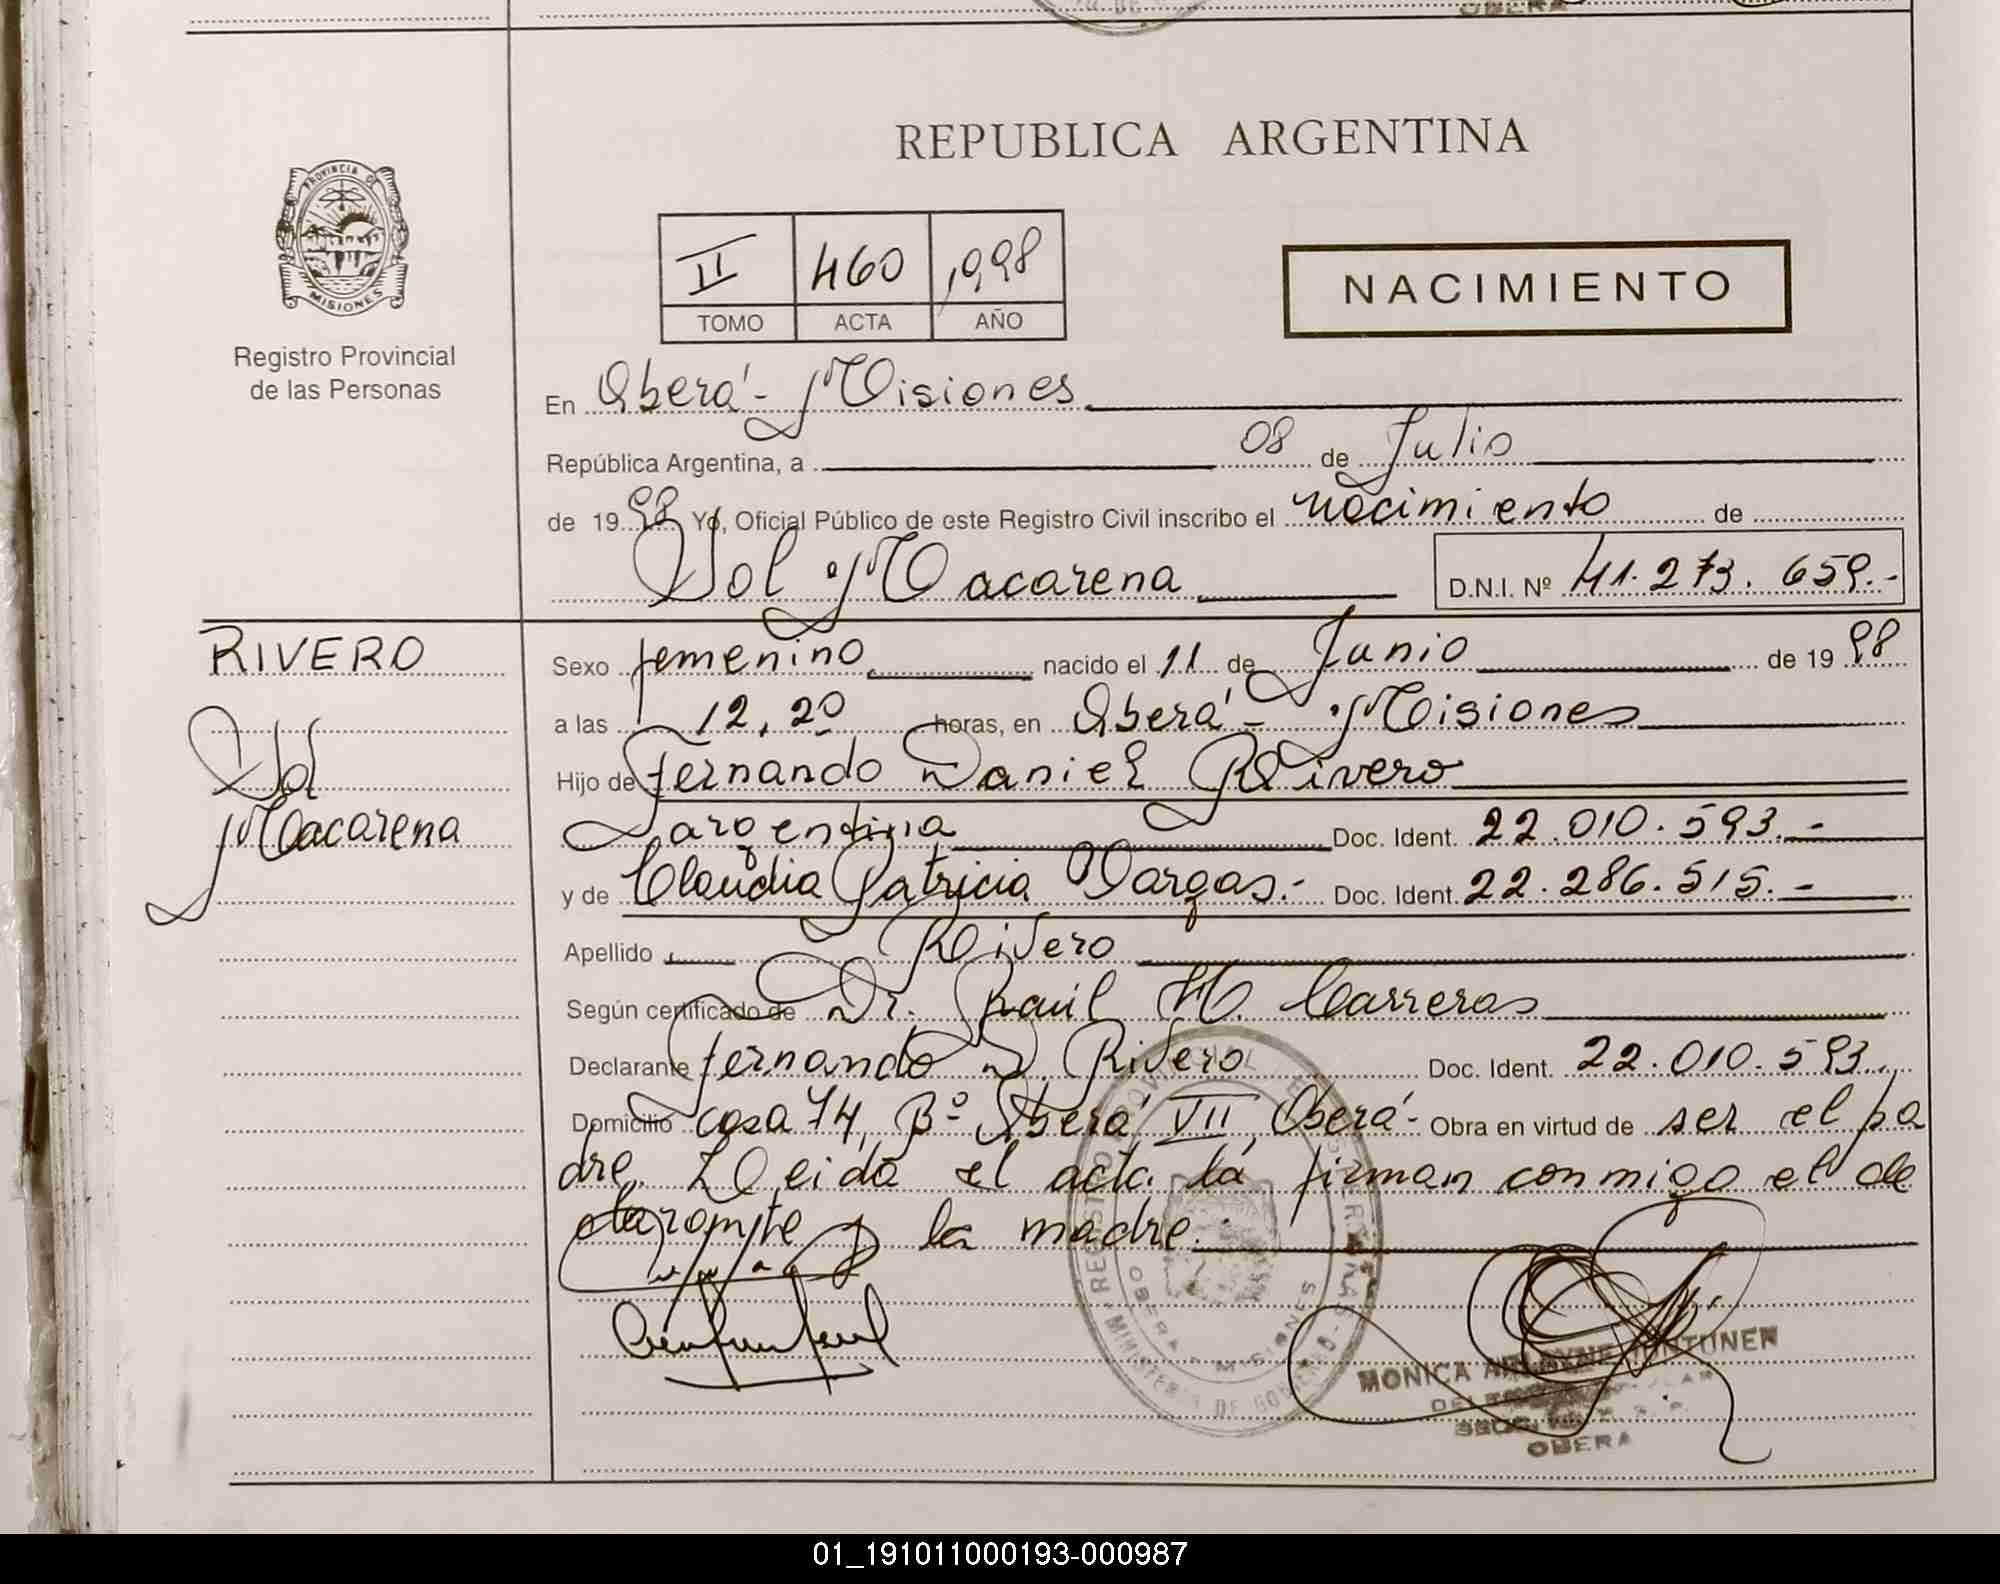 OBERA
REPUBLICA ARGENTINA
PROVINCIA DE
MISIONES
Registro Provincial
de las Personas
II 460 1998
TOMO ACTA AÑO
NACIMIENTO
En Oberá - Misiones
República Argentina, a 08 de Julio
de 1998 Yo, Oficial Público de este Registro Civil inscribo el nacimiento de
Sol Macarena D.N.I. Nº 41.273.659.-
RIVERO
Sol
Macarena
Sexo femenino nacido el 11 de Junio de 1998
a las 12,20 horas, en Oberá - Misiones
Hijo de Fernando Daniel Rivero
argentina Doc. Ident. 22.010.593.-
y de Claudia Patricia Vargas.- Doc. Ident. 22.286.515.-
Apellido Rivero
Según certificado de Dr. Raúl H. Carreras
Declarante Fernando D. Rivero Doc. Ident. 22.010.593.
Domicilio casa 74, Bº Oberá VII, Oberá- Obra en virtud de ser el pa
dre. Leida el acta la firman conmigo el de
clarante y la madre.
REGISTRO PROVINCIAL DE LAS PERSONAS
MINISTERIO DE GOBIERNO
OBERA - MISIONES
MONICA
OBERA
01_191011000193-000987